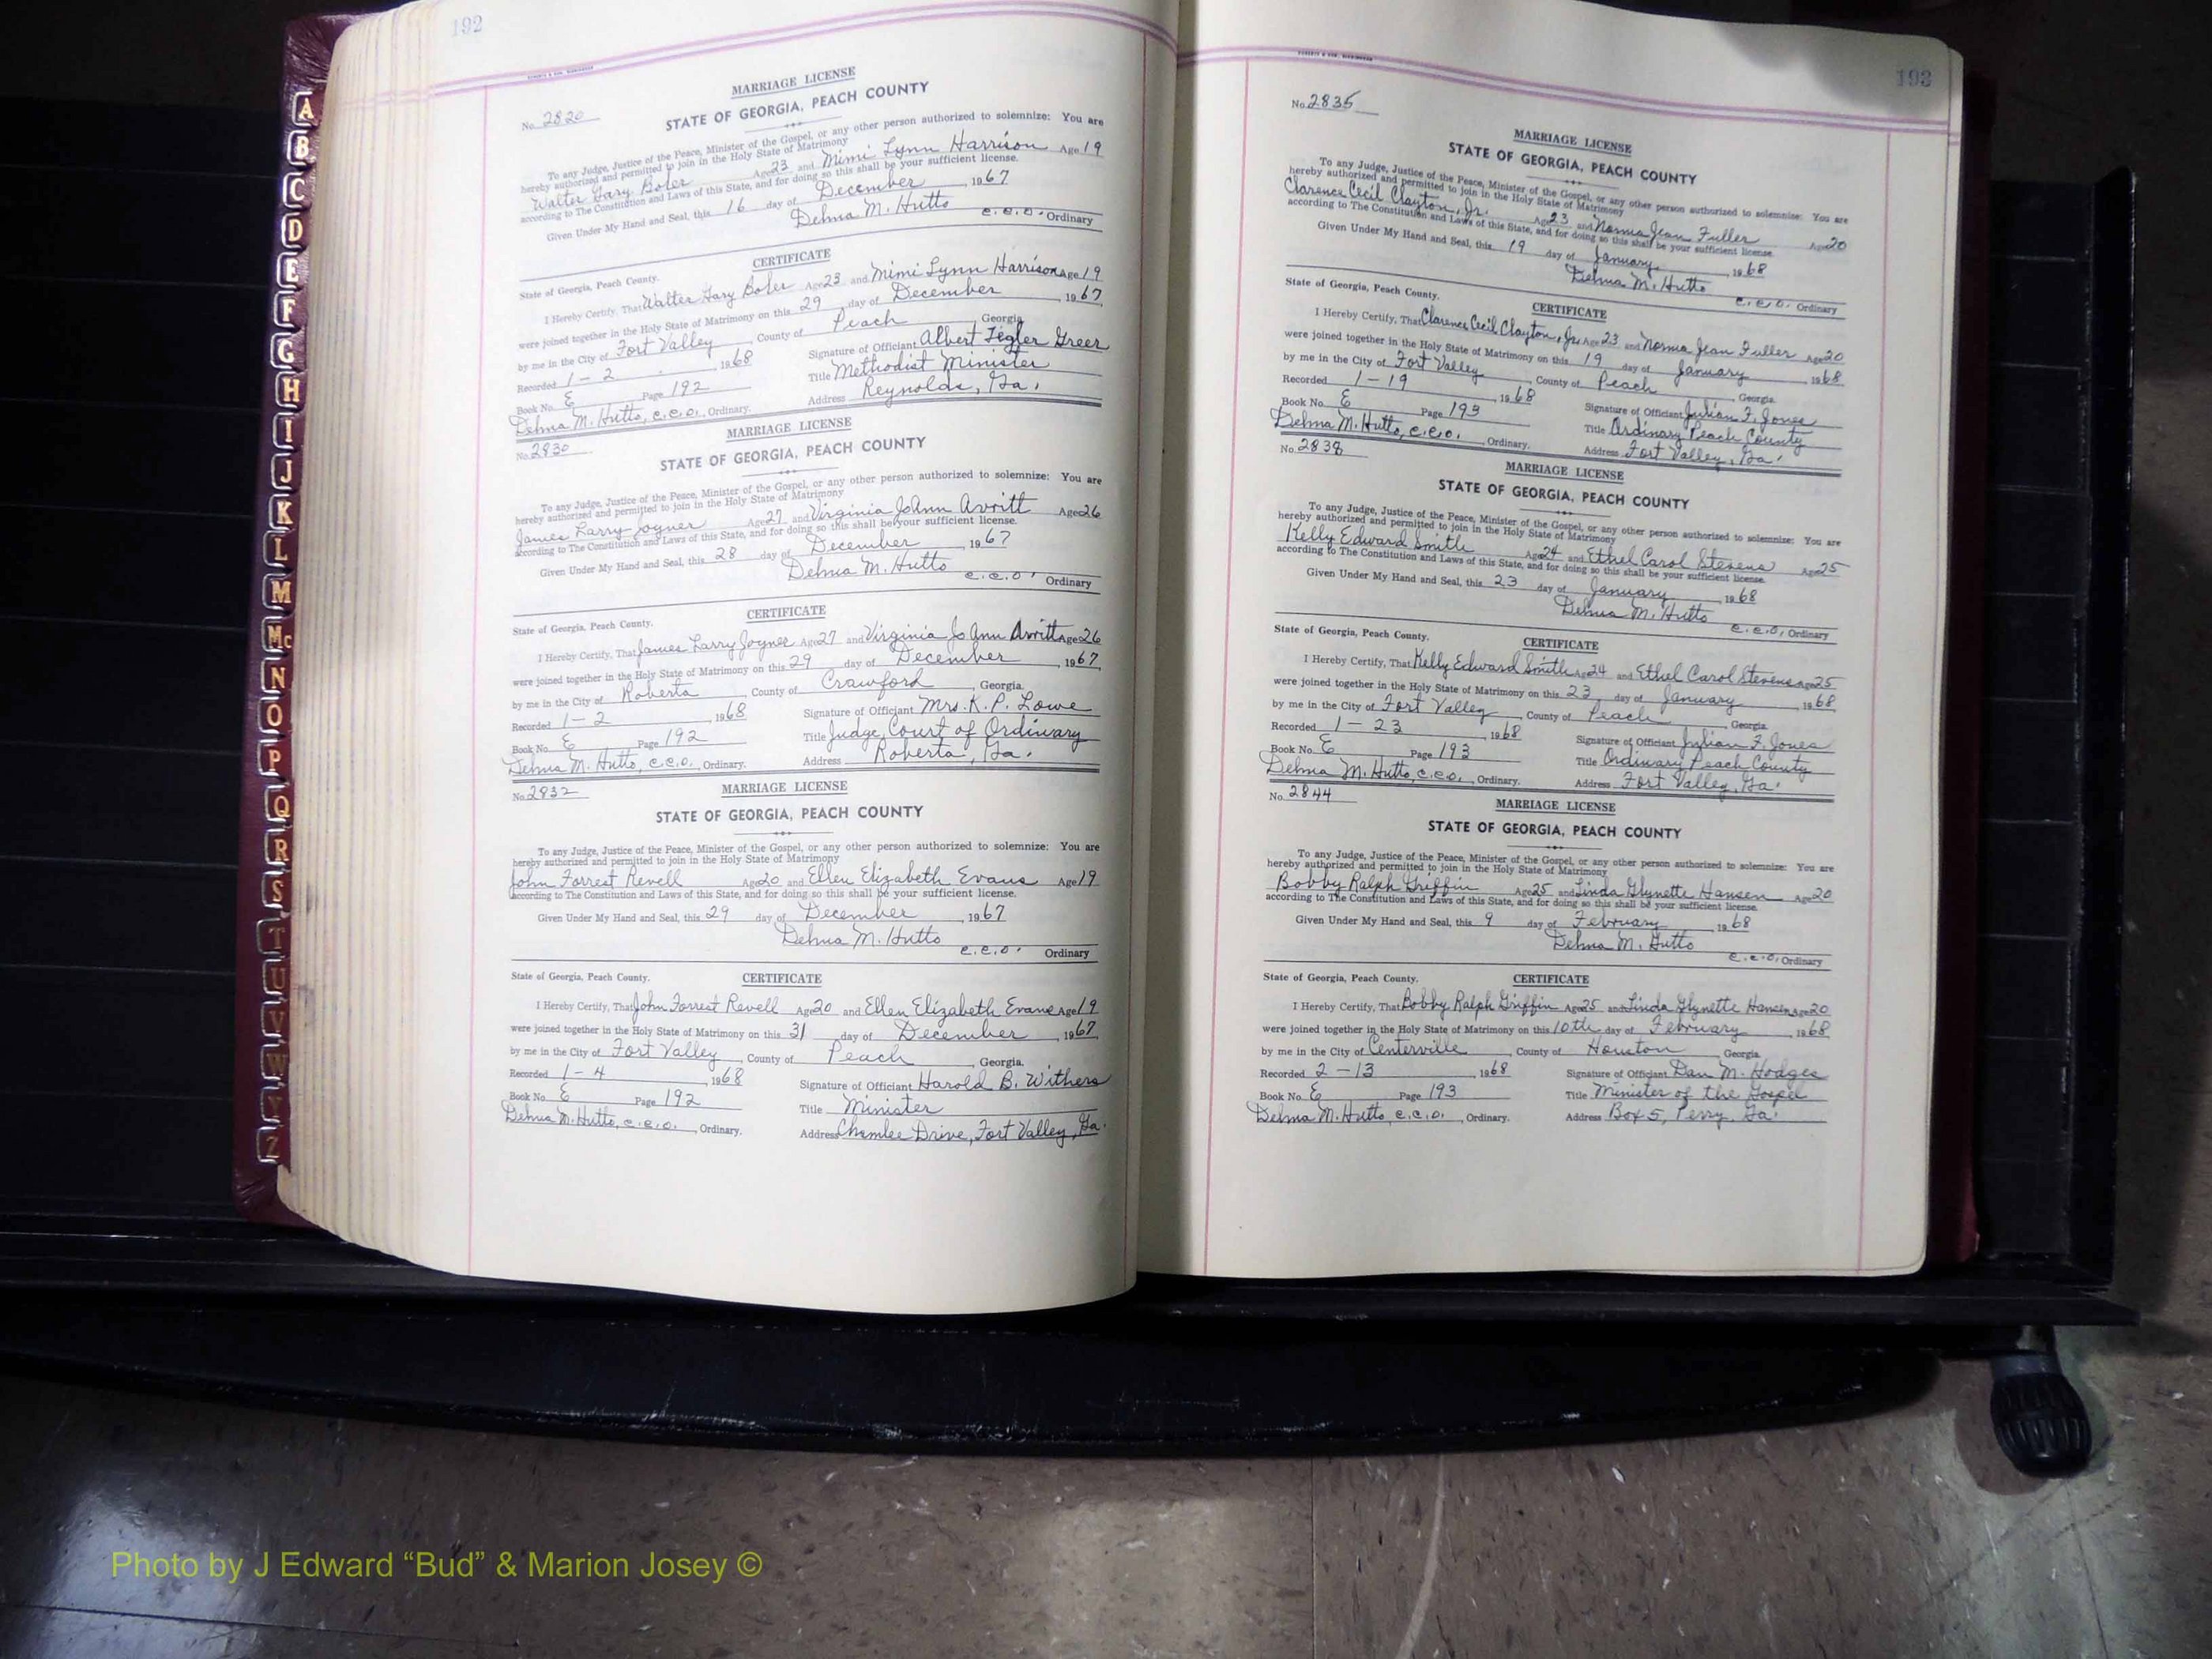 192
MARRIAGE LICENSE
No. 2820
STATE OF GEORGIA, PEACH COUNTY
To any Judge, Justice of the Peace, Minister of the Gospel, or any other person authorized to solemnize: You are
hereby authorized and permitted to join in the Holy State of Matrimony
Walter Gary Boler Age 23 and Mimi Lynn Harrison Age 19
according to The Constitution and Laws of this State, and for doing so this shall be your sufficient license.
Given Under My Hand and Seal, this 16 day of December, 1967
Delma M. Hutto c.c.o. Ordinary
CERTIFICATE
State of Georgia, Peach County.
I Hereby Certify, That Walter Gary Boler Age 23 and Mimi Lynn Harrison Age 19
were joined together in the Holy State of Matrimony on this 29 day of December, 1967
by me in the City of Fort Valley, County of Peach, Georgia.
Recorded 1-2, 1968
Signature of Officiant Albert Zegler Greer
Book No. E Page 192
Title Methodist Minister
Delma M. Hutto, c.c.o., Ordinary.
Address Reynolds, Ga.
MARRIAGE LICENSE
No. 2830
STATE OF GEORGIA, PEACH COUNTY
To any Judge, Justice of the Peace, Minister of the Gospel, or any other person authorized to solemnize: You are
hereby authorized and permitted to join in the Holy State of Matrimony
James Larry Joyner Age 27 and Virginia JoAnn Avritt Age 26
according to The Constitution and Laws of this State, and for doing so this shall be your sufficient license.
Given Under My Hand and Seal, this 28 day of December, 1967
Delma M. Hutto c.c.o. Ordinary
CERTIFICATE
State of Georgia, Peach County.
I Hereby Certify, That James Larry Joyner Age 27 and Virginia Jo Ann Avritt Age 26
were joined together in the Holy State of Matrimony on this 29 day of December, 1967
by me in the City of Roberta, County of Crawford, Georgia.
Recorded 1-2, 1968
Signature of Officiant Mrs. K. P. Lowe
Book No. E Page 192
Title Judge, Court of Ordinary
Delma M. Hutto, c.c.o., Ordinary.
Address Roberta, Ga.
MARRIAGE LICENSE
No. 2832
STATE OF GEORGIA, PEACH COUNTY
To any Judge, Justice of the Peace, Minister of the Gospel, or any other person authorized to solemnize: You are
hereby authorized and permitted to join in the Holy State of Matrimony
John Forrest Revell Age 20 and Ellen Elizabeth Evans Age 19
according to The Constitution and Laws of this State, and for doing so this shall be your sufficient license.
Given Under My Hand and Seal, this 29 day of December, 1967
Delma M. Hutto
c.c.o. Ordinary
State of Georgia, Peach County. CERTIFICATE
I Hereby Certify, That John Forrest Revell Age 20 and Ellen Elizabeth Evans Age 19
were joined together in the Holy State of Matrimony on this 31 day of December, 1967
by me in the City of Fort Valley, County of Peach, Georgia.
Recorded 1-4, 1968
Signature of Officiant Harold B. Withers
Book No. E Page 192
Title Minister
Delma M. Hutto, c.c.o., Ordinary.
Address Chamlee Drive, Fort Valley, Ga.
193
No. 2835
MARRIAGE LICENSE
STATE OF GEORGIA, PEACH COUNTY
To any Judge, Justice of the Peace, Minister of the Gospel, or any other person authorized to solemnize: You are
hereby authorized and permitted to join in the Holy State of Matrimony
Clarence Cecil Clayton, Jr. Age 23 and Norma Jean Fuller Age 20
according to The Constitution and Laws of this State, and for doing so this shall be your sufficient license.
Given Under My Hand and Seal, this 19 day of January, 1968
Delma M. Hutto
c.c.o. Ordinary
State of Georgia, Peach County. CERTIFICATE
I Hereby Certify, That Clarence Cecil Clayton, Jr. Age 23 and Norma Jean Fuller Age 20
were joined together in the Holy State of Matrimony on this 19 day of January 1968
by me in the City of Fort Valley, County of Peach, Georgia.
Recorded 1-19, 1968
Signature of Officiant Julian F. Jones
Book No. E Page 193
Title Ordinary Peach County
Delma M. Hutto, c.c.o., Ordinary.
Address Fort Valley, Ga.
No. 2838
MARRIAGE LICENSE
STATE OF GEORGIA, PEACH COUNTY
To any Judge, Justice of the Peace, Minister of the Gospel, or any other person authorized to solemnize: You are
hereby authorized and permitted to join in the Holy State of Matrimony
Kelly Edward Smith Age 24 and Ethel Carol Stevens Age 25
according to The Constitution and Laws of this State, and for doing so this shall be your sufficient license.
Given Under My Hand and Seal, this 23 day of January, 1968
Delma M. Hutto
c.c.o. Ordinary
State of Georgia, Peach County. CERTIFICATE
I Hereby Certify, That Kelly Edward Smith Age 24 and Ethel Carol Stevens Age 25
were joined together in the Holy State of Matrimony on this 23 day of January, 1968
by me in the City of Fort Valley, County of Peach, Georgia.
Recorded 1-23, 1968
Signature of Officiant Julian F. Jones
Book No. E Page 193
Title Ordinary Peach County
Delma M. Hutto, c.c.o., Ordinary.
Address Fort Valley, Ga.
No. 2844
MARRIAGE LICENSE
STATE OF GEORGIA, PEACH COUNTY
To any Judge, Justice of the Peace, Minister of the Gospel, or any other person authorized to solemnize: You are
hereby authorized and permitted to join in the Holy State of Matrimony
Bobby Ralph Griffin Age 25 and Linda Glynette Hansen Age 20
according to The Constitution and Laws of this State, and for doing so this shall be your sufficient license.
Given Under My Hand and Seal, this 9 day of February, 1968
Delma M. Hutto
c.c.o. Ordinary
State of Georgia, Peach County. CERTIFICATE
I Hereby Certify, That Bobby Ralph Griffin Age 25 and Linda Glynette Hansen Age 20
were joined together in the Holy State of Matrimony on this 10th day of February, 1968
by me in the City of Centerville, County of Houston, Georgia.
Recorded 2-13, 1968
Signature of Officiant Dan M. Hodges
Book No. E Page 193
Title Minister of the Gospel
Delma M. Hutto, c.c.o., Ordinary.
Address Box 5, Perry, Ga.
A
B
C
D
E
F
G
H
I
J
K
L
M
Mc
N
O
P
Q
R
S
T
U
V
W
Y
Z
Photo by J Edward “Bud” & Marion Josey ©